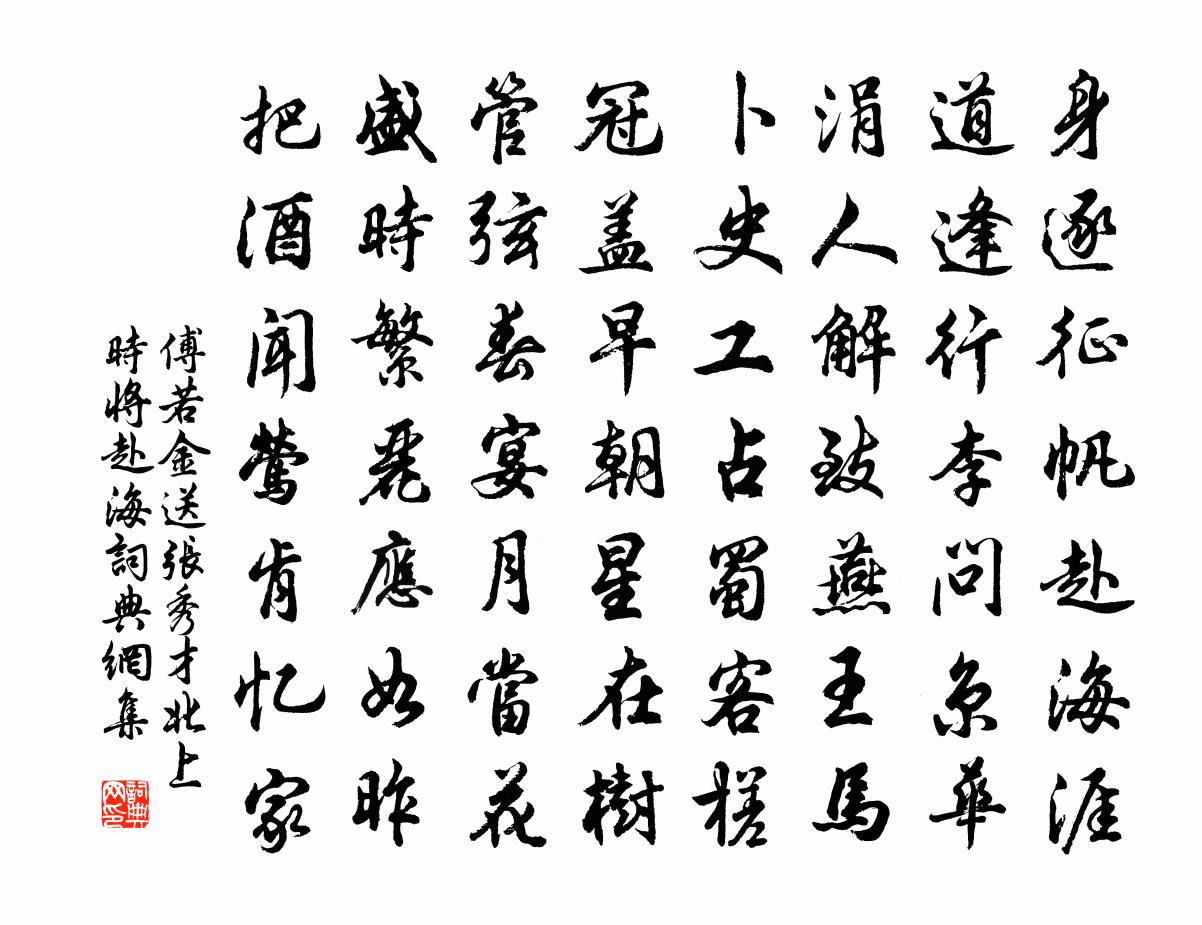 身逐征帆赴海涯
道逢行李问京華
涓人解致燕王馬
卜史工占蜀客槎
冠盖早朝星在樹
管弦春宴月當花
盛時繁麗應如昨
把酒闻鶯肯忆家
傅若金送張秀才北上
時将赴海詞典網集
詞典
网印